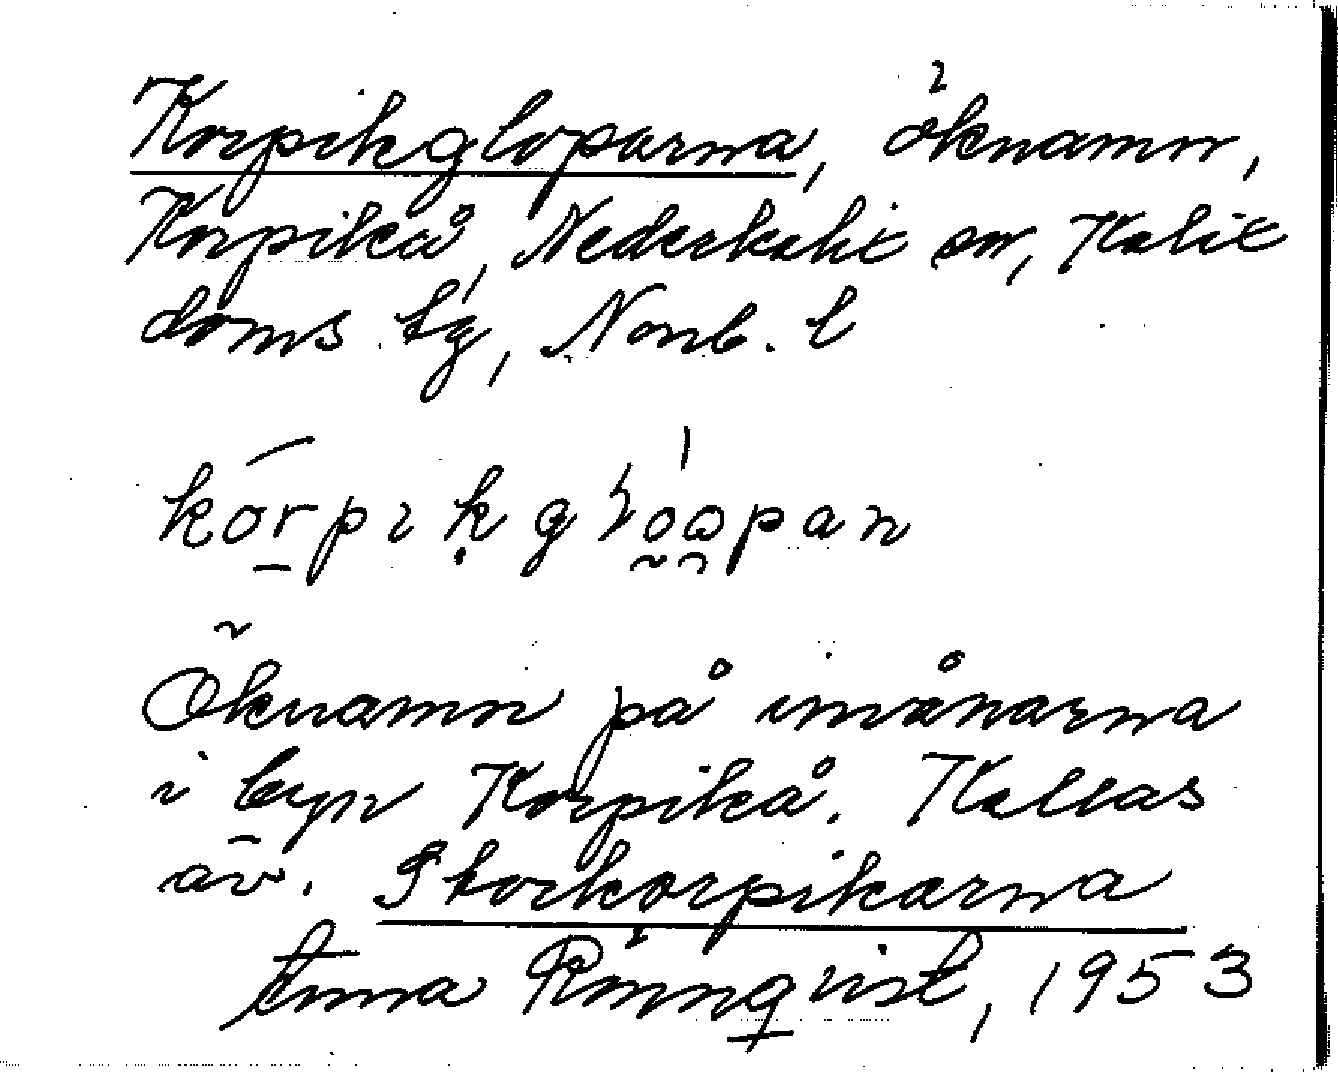 Korpikgloparna, öknamn,
Korpikå, Nederkalix sn, Kalix
doms. tg, Norrb. l
Öknamn på invånarna
i byn Korpikå. Kallas
äv. Storkorpikarna
Anna Rönnqvist, 1953